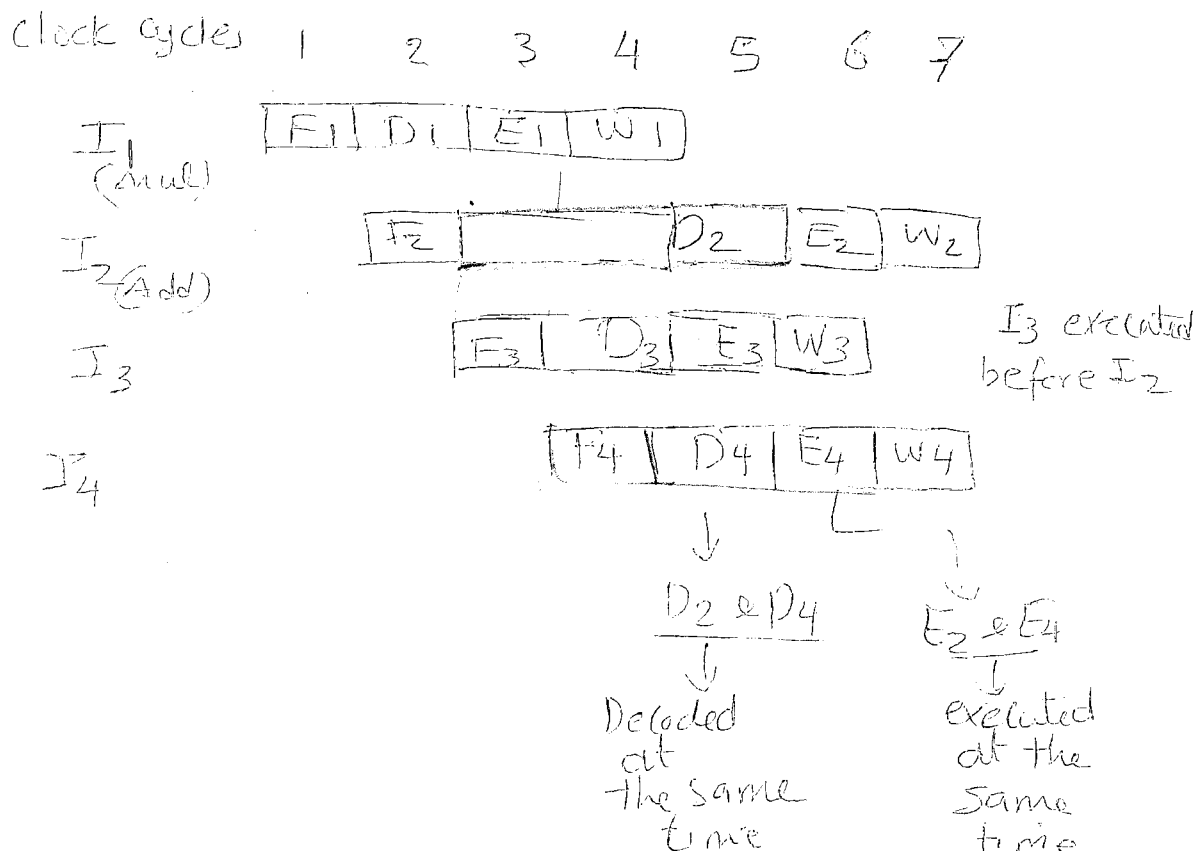 Clock cycles 1 2 3 4 5 6 7
I1 F1 D1 E1 W1
(Mul)
I2 F2 D2 E2 W2
(Add)
I3 F3 D3 E3 W3
I3 executed
before I2
I4 F4 D4 E4 W4
D2 & D4
Decoded
at
the same
time
E2 & E4
executed
at the
same
time